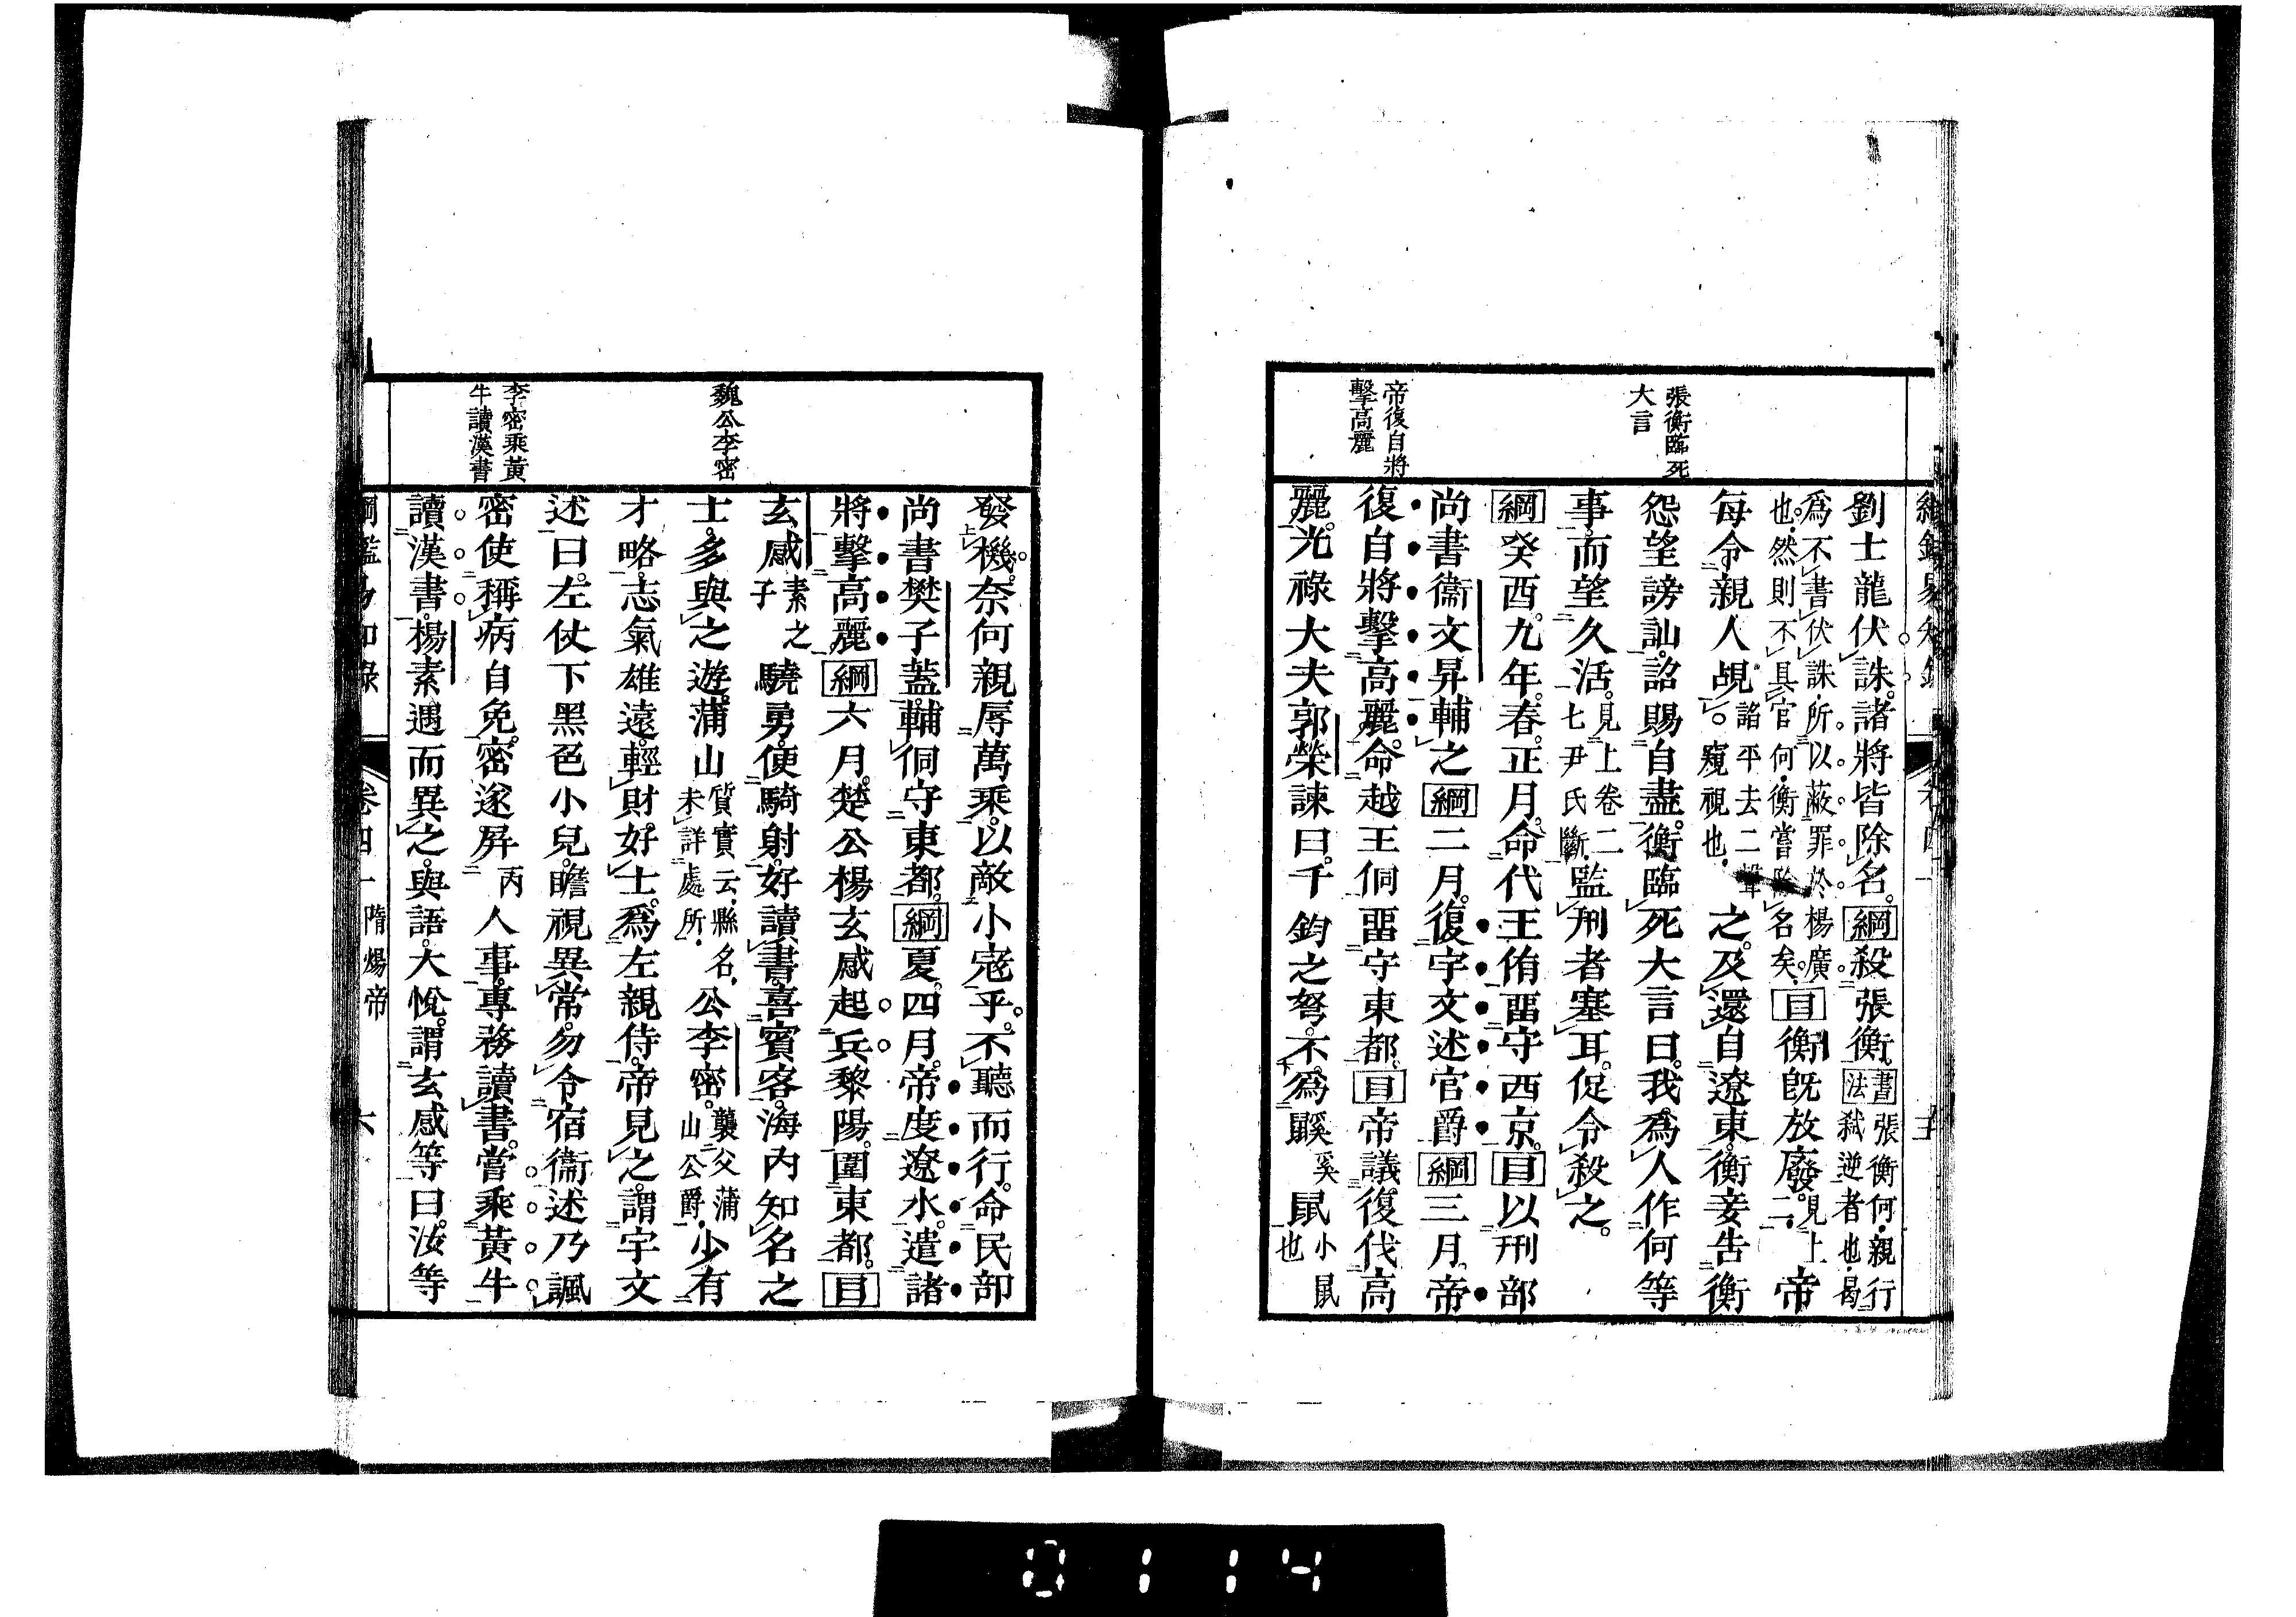 張衡臨死
大言
帝復自將
擊高麗
劉士龍伏誅。諸將皆除名。綱殺張衡。書法張衡何。親行弑逆者也。曷
爲不書伏誅。所以蔽罪於楊廣也。然則不具官何。衡嘗除名矣。目衡既放廢。見上二。帝
每令親人覘諂平去二聲。窺視也。之。及還自遼東。衡妾告衡
怨望謗訕。詔賜自盡。衡臨死大言曰。我爲人作何等
事。而望久活。見上卷二七尹氏斷。監刑者塞耳。促令殺之。
綱癸酉。九年。春。正月。命代王侑畱守西京。目以刑部
尚書衞文昇輔之綱二月。復宇文述官爵綱三月。帝
復自將擊高麗。命越王侗畱守東都。目帝議復伐高
麗。光祿大夫郭榮諫曰。千鈞之弩。不爲鼷奚鼠小鼠也
魏公李密
李密乘黃
牛讀漢書
發機。奈何親辱萬乘。以敵小寇乎。不聽而行。命民部
尚書樊子蓋。輔侗守東都。綱夏。四月。帝度遼水。遣諸
將擊高麗。綱六月。楚公楊玄感起兵黎陽。圍東都。目
玄感素之子驍勇。便騎射。好讀書。喜賓客。海內知名之
士。多與之遊。蒲山質實云。縣名。未詳處所。公李密。襲父蒲山公爵。少有
才略。志氣雄遠。輕財好士。爲左親侍。帝見之。謂宇文
述曰。左仗下黑色小兒。瞻視異常。勿令宿衞。述乃諷
密使稱病自免。密遂屏丙人事。專務讀書。嘗乘黃牛
讀漢書。楊素遇而異之。與語。大悅。謂玄感等曰。汝等
綱鑑易知錄 卷四十一 隋煬帝 六
0114